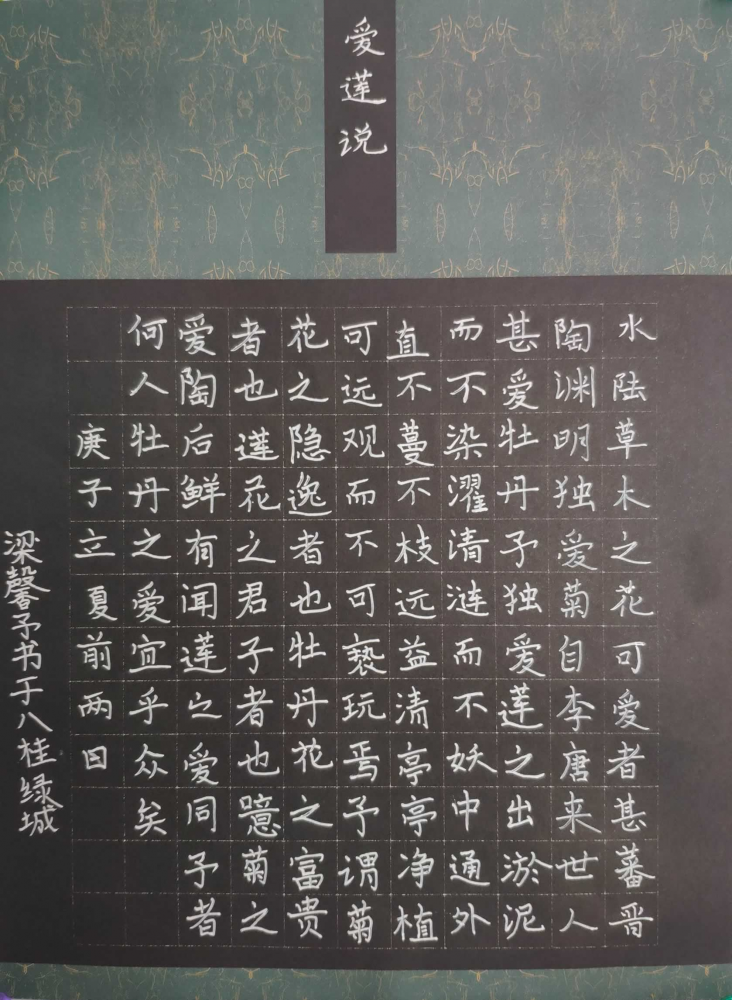 爱莲说
水陆草木之花可爱者甚蕃晋
陶渊明独爱菊自李唐来世人
甚爱牡丹予独爱莲之出淤泥
而不染濯清涟而不妖中通外
直不蔓不枝远益清亭亭净植
可远观而不可亵玩焉予谓菊
花之隐逸者也牡丹花之富贵
者也莲花之君子者也噫菊之
爱陶后鲜有闻莲之爱同予者
何人牡丹之爱宜乎众矣
庚子立夏前两日
梁馨予书于八桂绿城